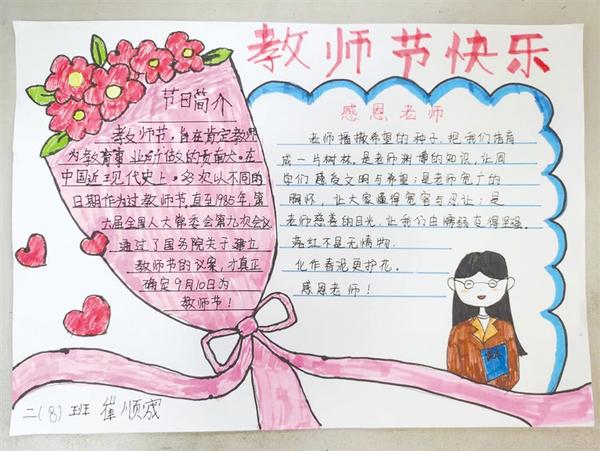 教师节快乐
节日简介
教师节，旨在肯定教师
为教育事业所做的贡献大。在
中国近现代史上。多次以不同的
日期作为过教师节，直至1985年，第
六届全国人大常委会第九次会议
通过了国务院关于建立
教师节的议案，才真正
确定9月10日为
教师节！
感恩老师
老师播撒希望的种子，把我们培育
成一片树林，是老师渊博的知识，让同
学们感受文明与希望；是老师宽广的
胸怀，让大家懂得宽容与忍让；是
老师慈善的目光，让我们由懦弱变得坚强。
落红不是无情物，
化作春泥更护花。
感恩老师！
二(8)班 崔顺成